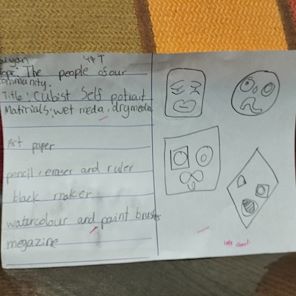 The people of our
community.
Title: Cubist Self potrait
Matirials: wet meda, dry media
Art paper
pencil, eraser and ruler
black maker
watercolour and paint brushes
megazine